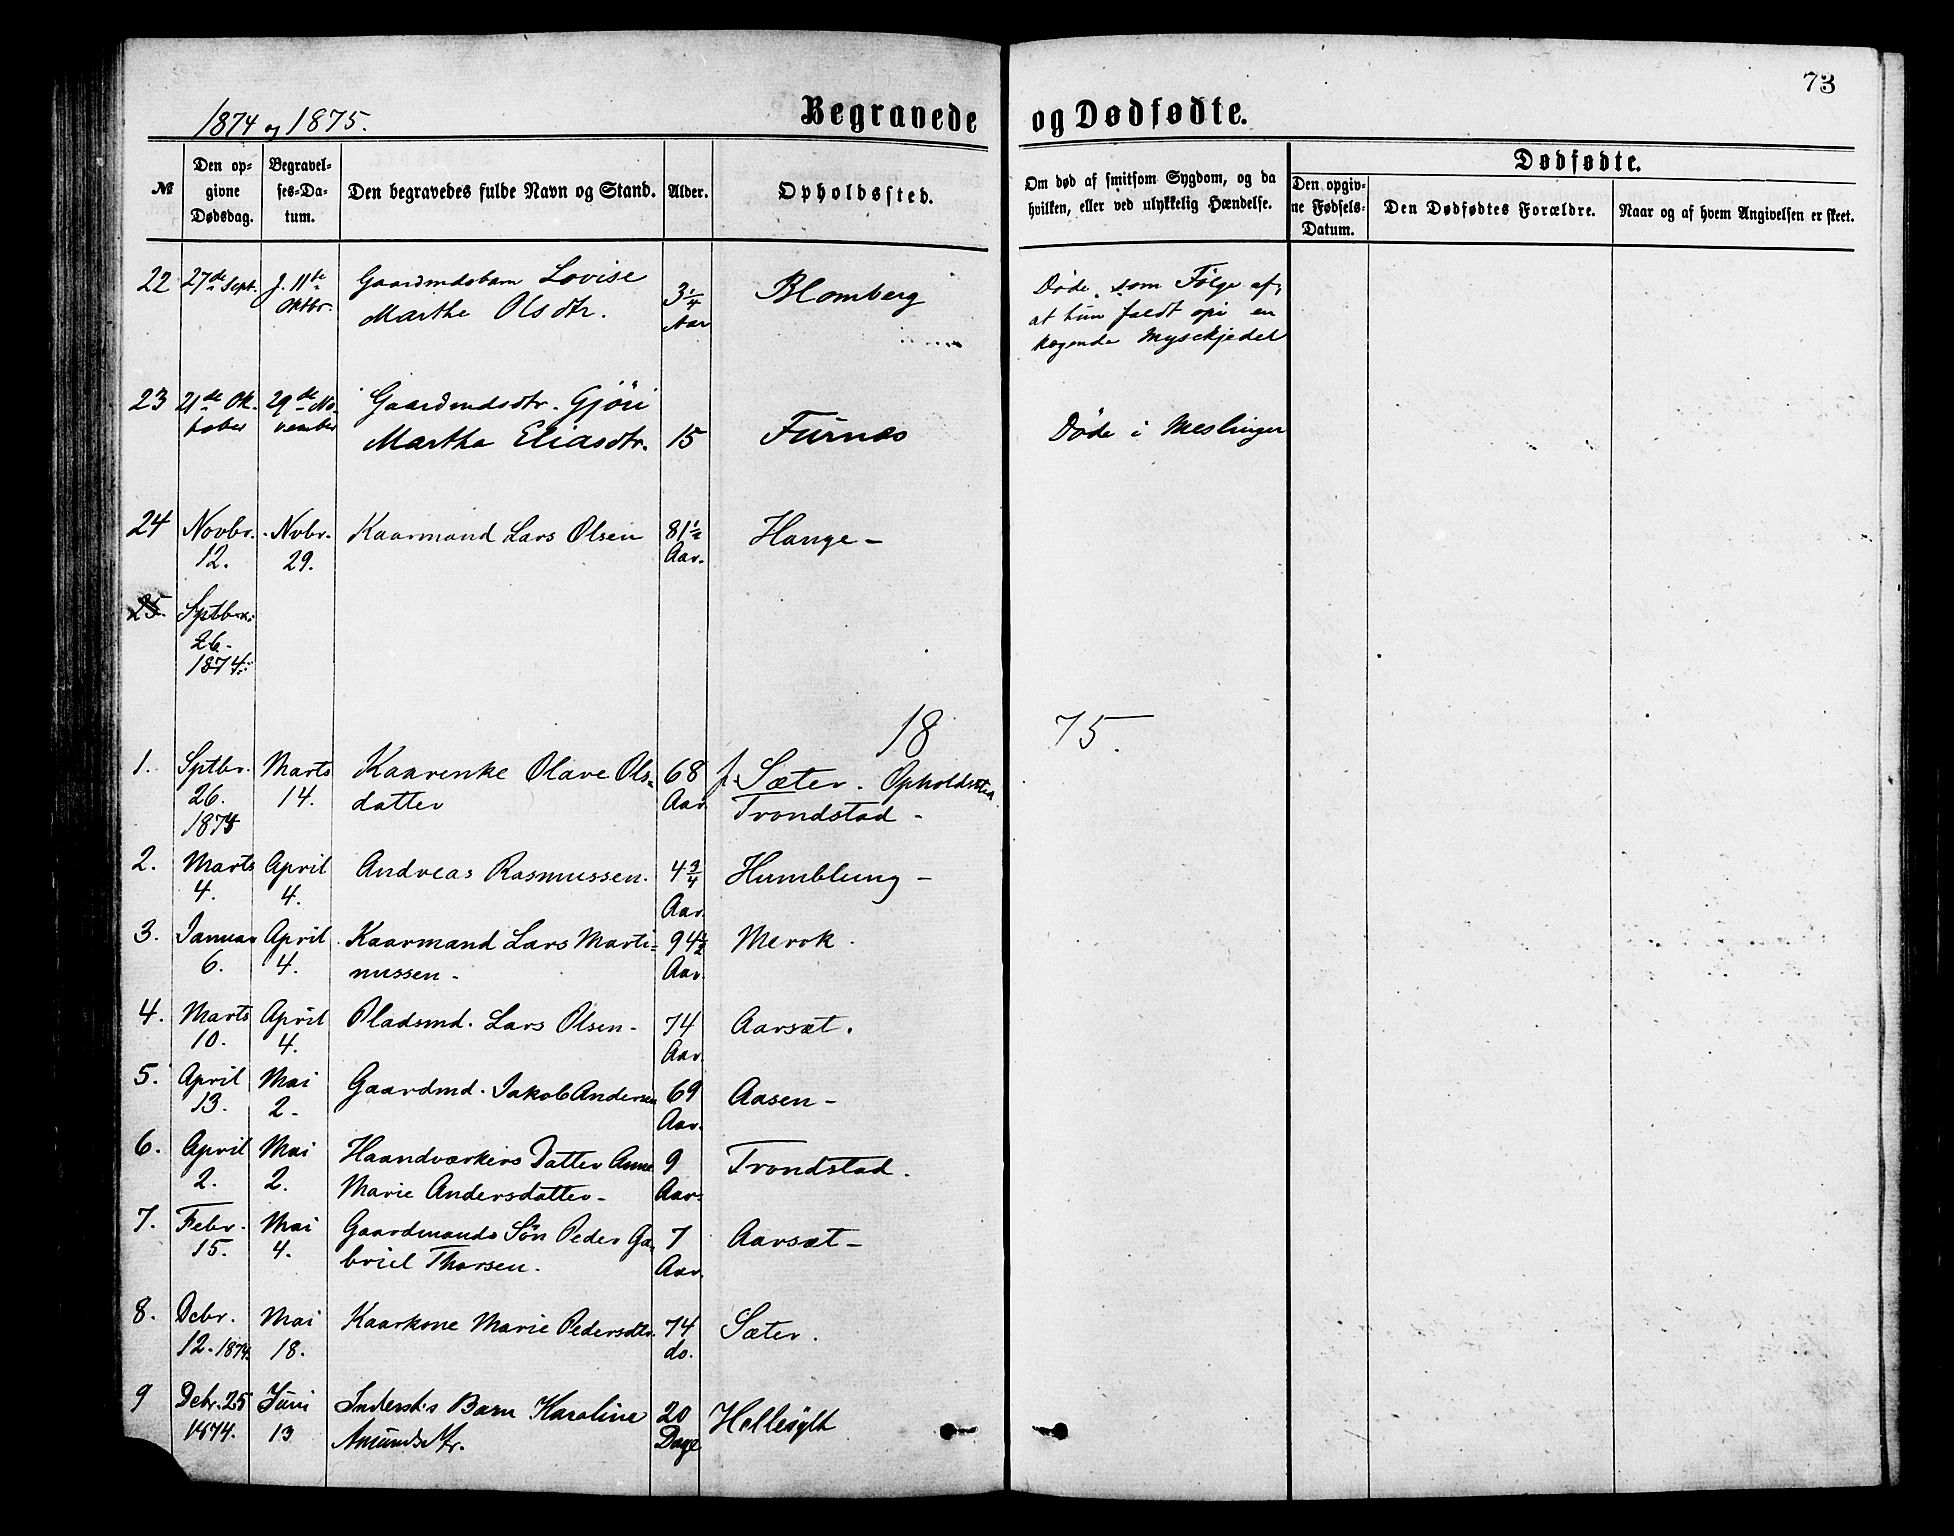 73
1874 og 1875.
Begravede og Dødfødte.
№
Den op-
givne
Dødsdag.
Begravel-
ses-Da-
tum.
Den begravedes fulde Navn og Stand.
Alder.
Opholdssted.
Om død af smitsom Sygdom, og da
hvilken, eller ved ulykkelig Hændelse.
Dødfødte.
Den opgiv-
ne Fødsels-
Datum.
Den Dødfødtes Forældre.
Naar og af hvem Angivelsen er skeet.
22 27de Sept. J. 11te Gaardmdsbarn Lovise 3 1/4 Blomberg Døde som Følge af,
Oktbr. Marthe Olsdtr. Aar at hun faldt opi en
kogende Mysekjedel
23 21de Ok- 29de No- Gaardmdsdtr. Gjöri
tober vember Martha Eliasdtr. 15 Furnes Døde i Meslinger
24 Novbr. Nvbr. Kaarmand Lars Olsen 81 1/2 Hauge -
12. 29. Aar.
25. Sptbr.
26.
1874.
18 75.
1. Sptbr. Marts Kaarenke Olave Ols= 68 f. Sæter. Opholdssted
26. 14. datter Aar Trondstad -
1874
2. Marts April Andreas Rasmussen. 4 3/4 Humblung -
4. 4. Aar.
3. Januar April Kaarmand Lars Marti= 94 1/2 Merok.
6. 4. nussen - Aar.
4. Marts April Pladsmd. Lars Olsen - 74 Aarsæt.
10. 4. Aar.
5. April Mai Gaardmd. Jakob Andersen 69 Aasen -
13. 2. Aar.
6. April Mai Haandværkers Datter Anne 9 Trondstad.
2. 2. Marie Andersdatter - Aar.
7. Febr. Mai Gaardmands Sön Peder Ga- 7 Aarsæt -
15. 4. briel Thorsen. Aar.
8. Dcbr. Mai Kaarkone Marie Pedersdtr. 74 Sæter.
12. 1874. 18. do.
9 Dcbr. 25 Juni Inderst's Barn Karoline 20 Hellesylt
1874. 13 Amundsdtr. Dage